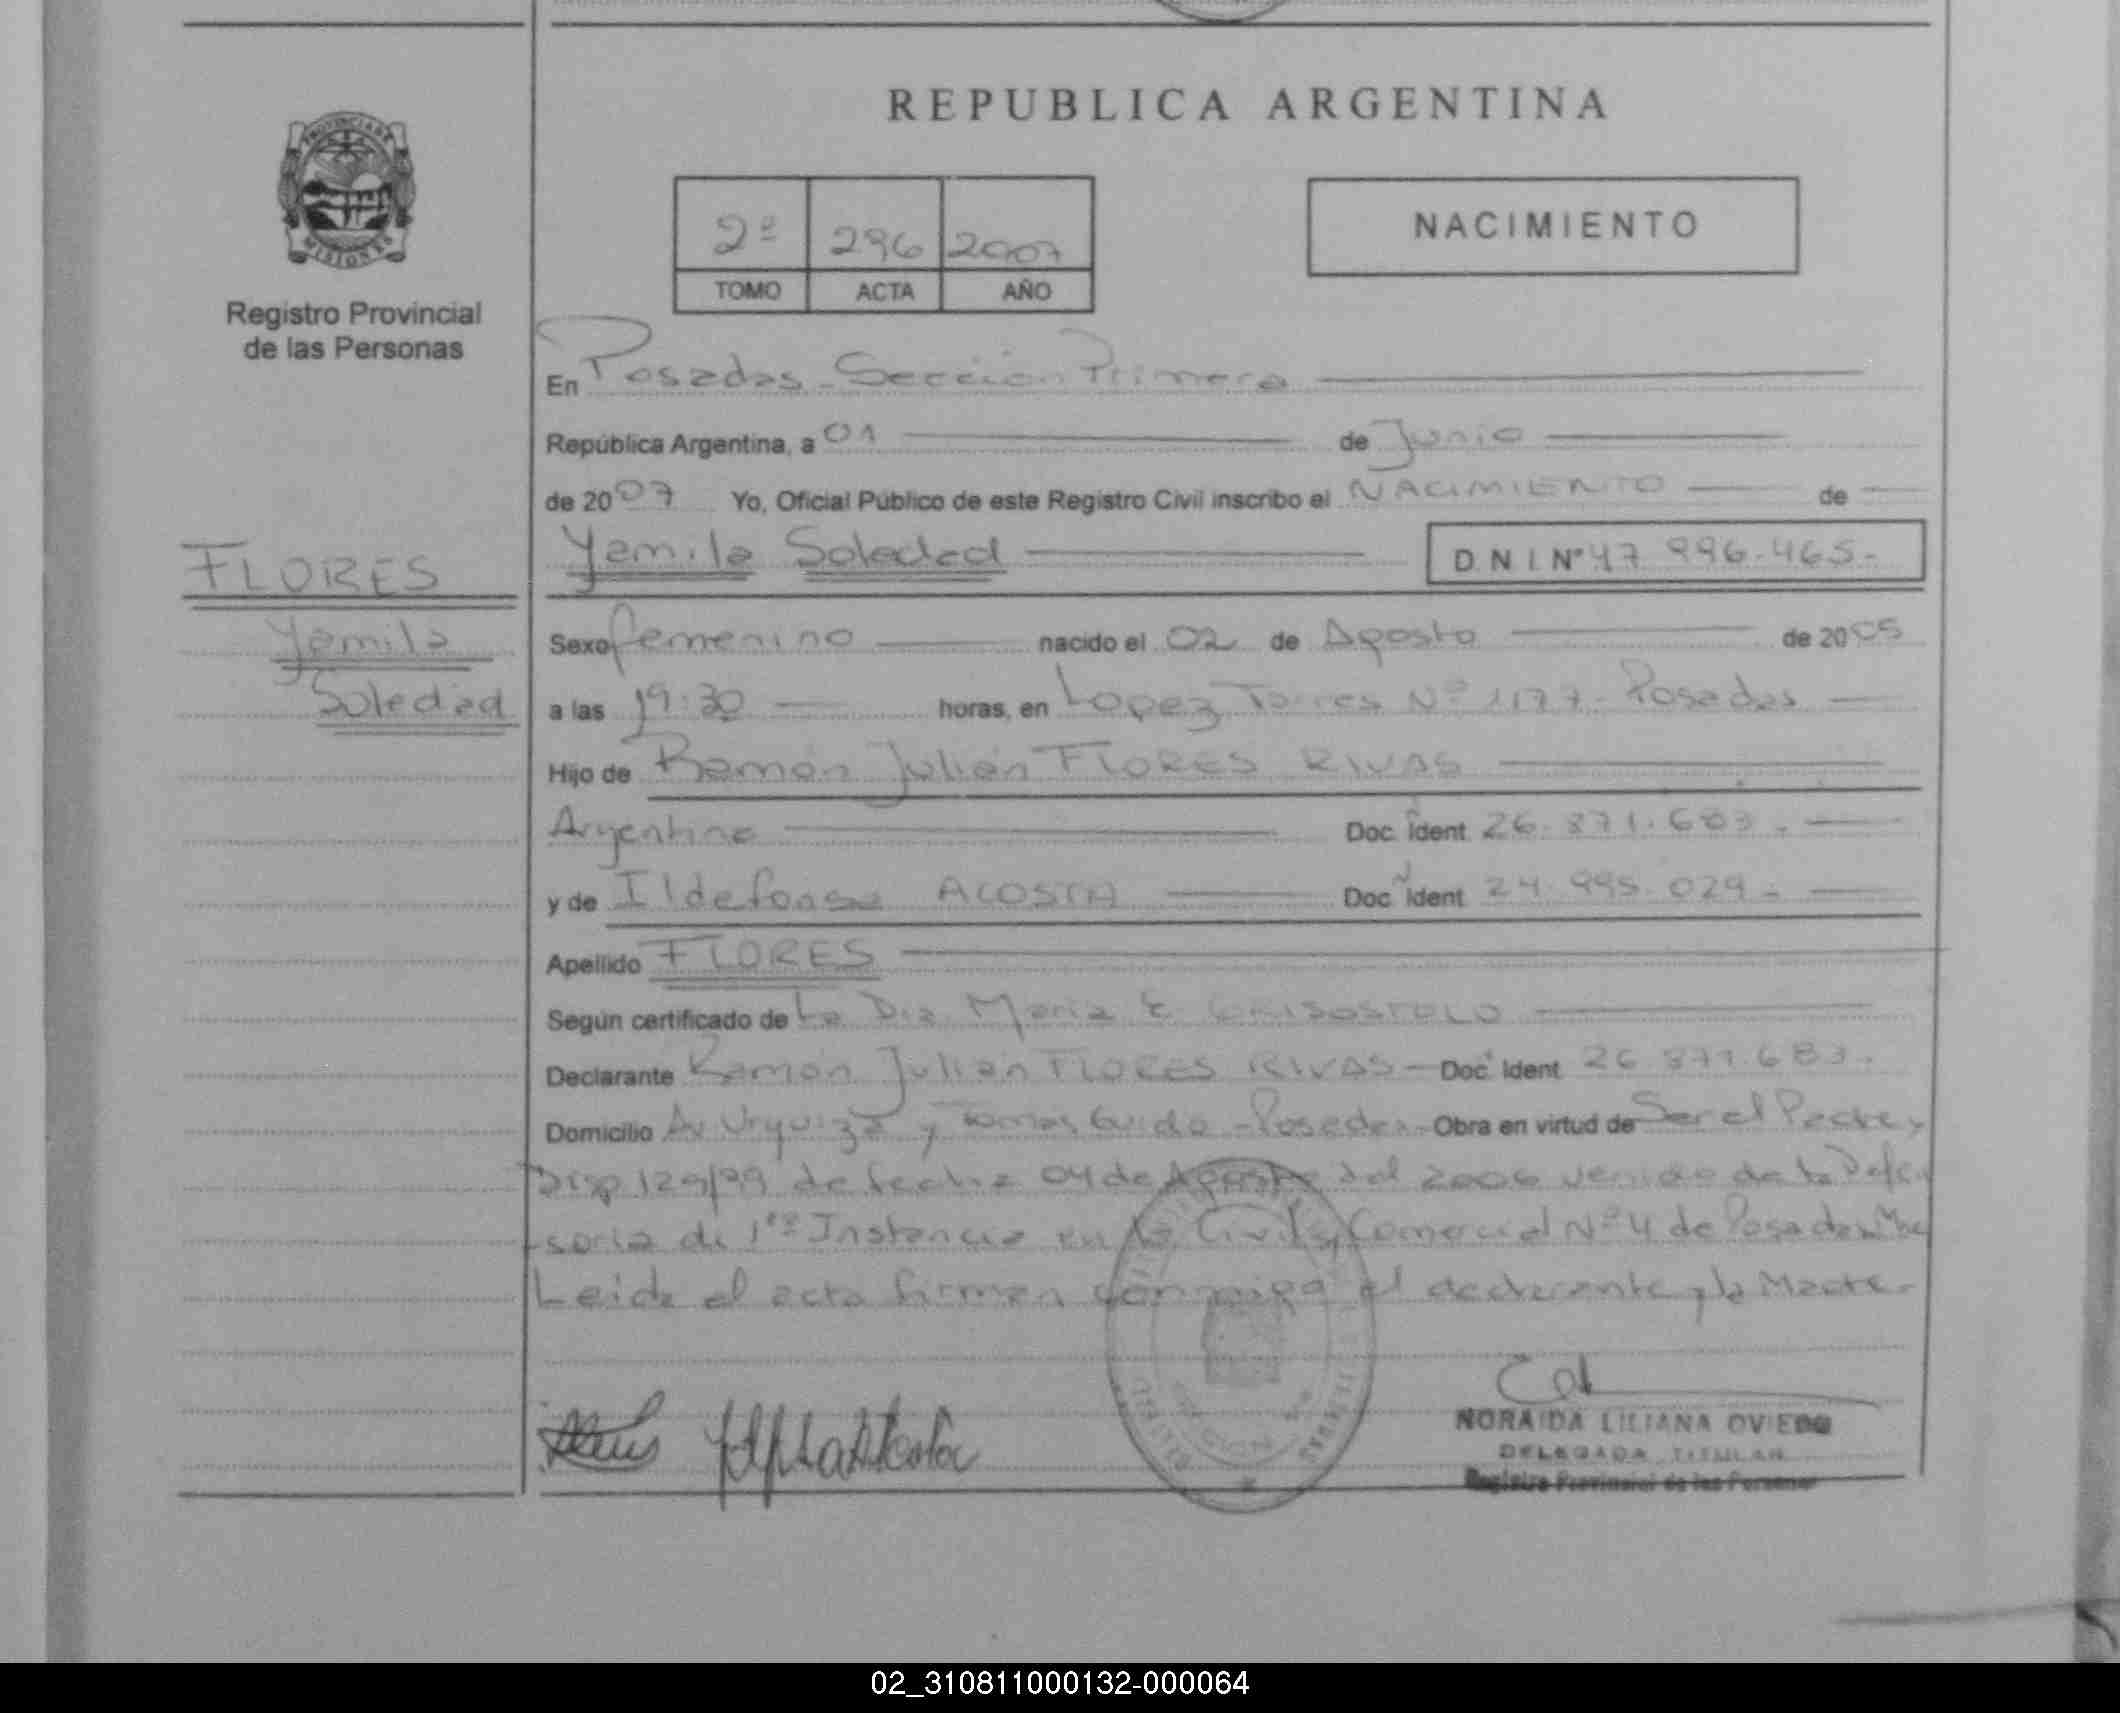 REPUBLICA ARGENTINA
PROVINCIA DE
MISIONES
Registro Provincial
de las Personas
2º 296 2007
TOMO ACTA AÑO
NACIMIENTO
En Posadas - Sección Primera
República Argentina, a 01 de Junio
de 2007 Yo, Oficial Público de este Registro Civil inscribo el NACIMIENTO de
FLORES
Yamila
Soledad
Yamila Soledad D.N.I. Nº 47 996.465.-
Sexo femenino nacido el 02 de Agosto de 2005
a las 19:30 horas, en Lopez Torres Nº 1177 - Posadas
Hijo de Ramón Julián FLORES RIVAS
Argentino Doc. Ident. 26.871.683.-
y de Ildefonsa ACOSTA Doc. Ident. 24.995.029.-
Apellido FLORES
Según certificado de La Dra María E. GRISOSTOLO
Declarante Ramón Julián FLORES RIVAS - Doc. Ident. 26.871.683.-
Domicilio Av Urquiza y Tomas Guido - Posadas - Obra en virtud de Ser el Padre y
Disp 129/99 de fecha 04 de Agosto del 2006 venido de la Defen
soria de 1ra Instancia en lo Civil y Comercial Nº 4 de Posadas Mnes
Leida el acta firman conmigo el declarante y la Madre.-
NORAIDA LILIANA OVIEDO
DELEGADA TITULAR
Registro Provincial de las Personas
02_310811000132-000064